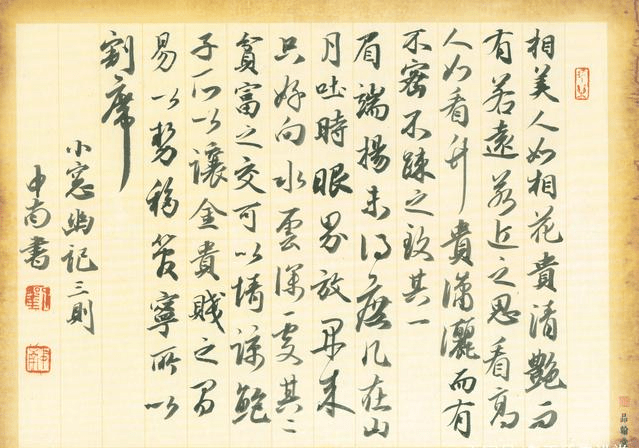 相美人如相花貴清艷而
有若遠若近之思看高
人如看竹貴瀟灑而有
不密不疎之致其一
眉端揚未得庶几在山
月吐時眼界放開来
只好向水雲深處其二
貧富之交可以情諒鮑
子所以讓金貴賤之間
易以勢移管寧所以
割席
小窓幽記三則
申尚書
品翰